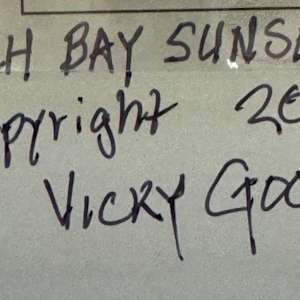 H BAY SUNS
pyright 20
VICKY GOO